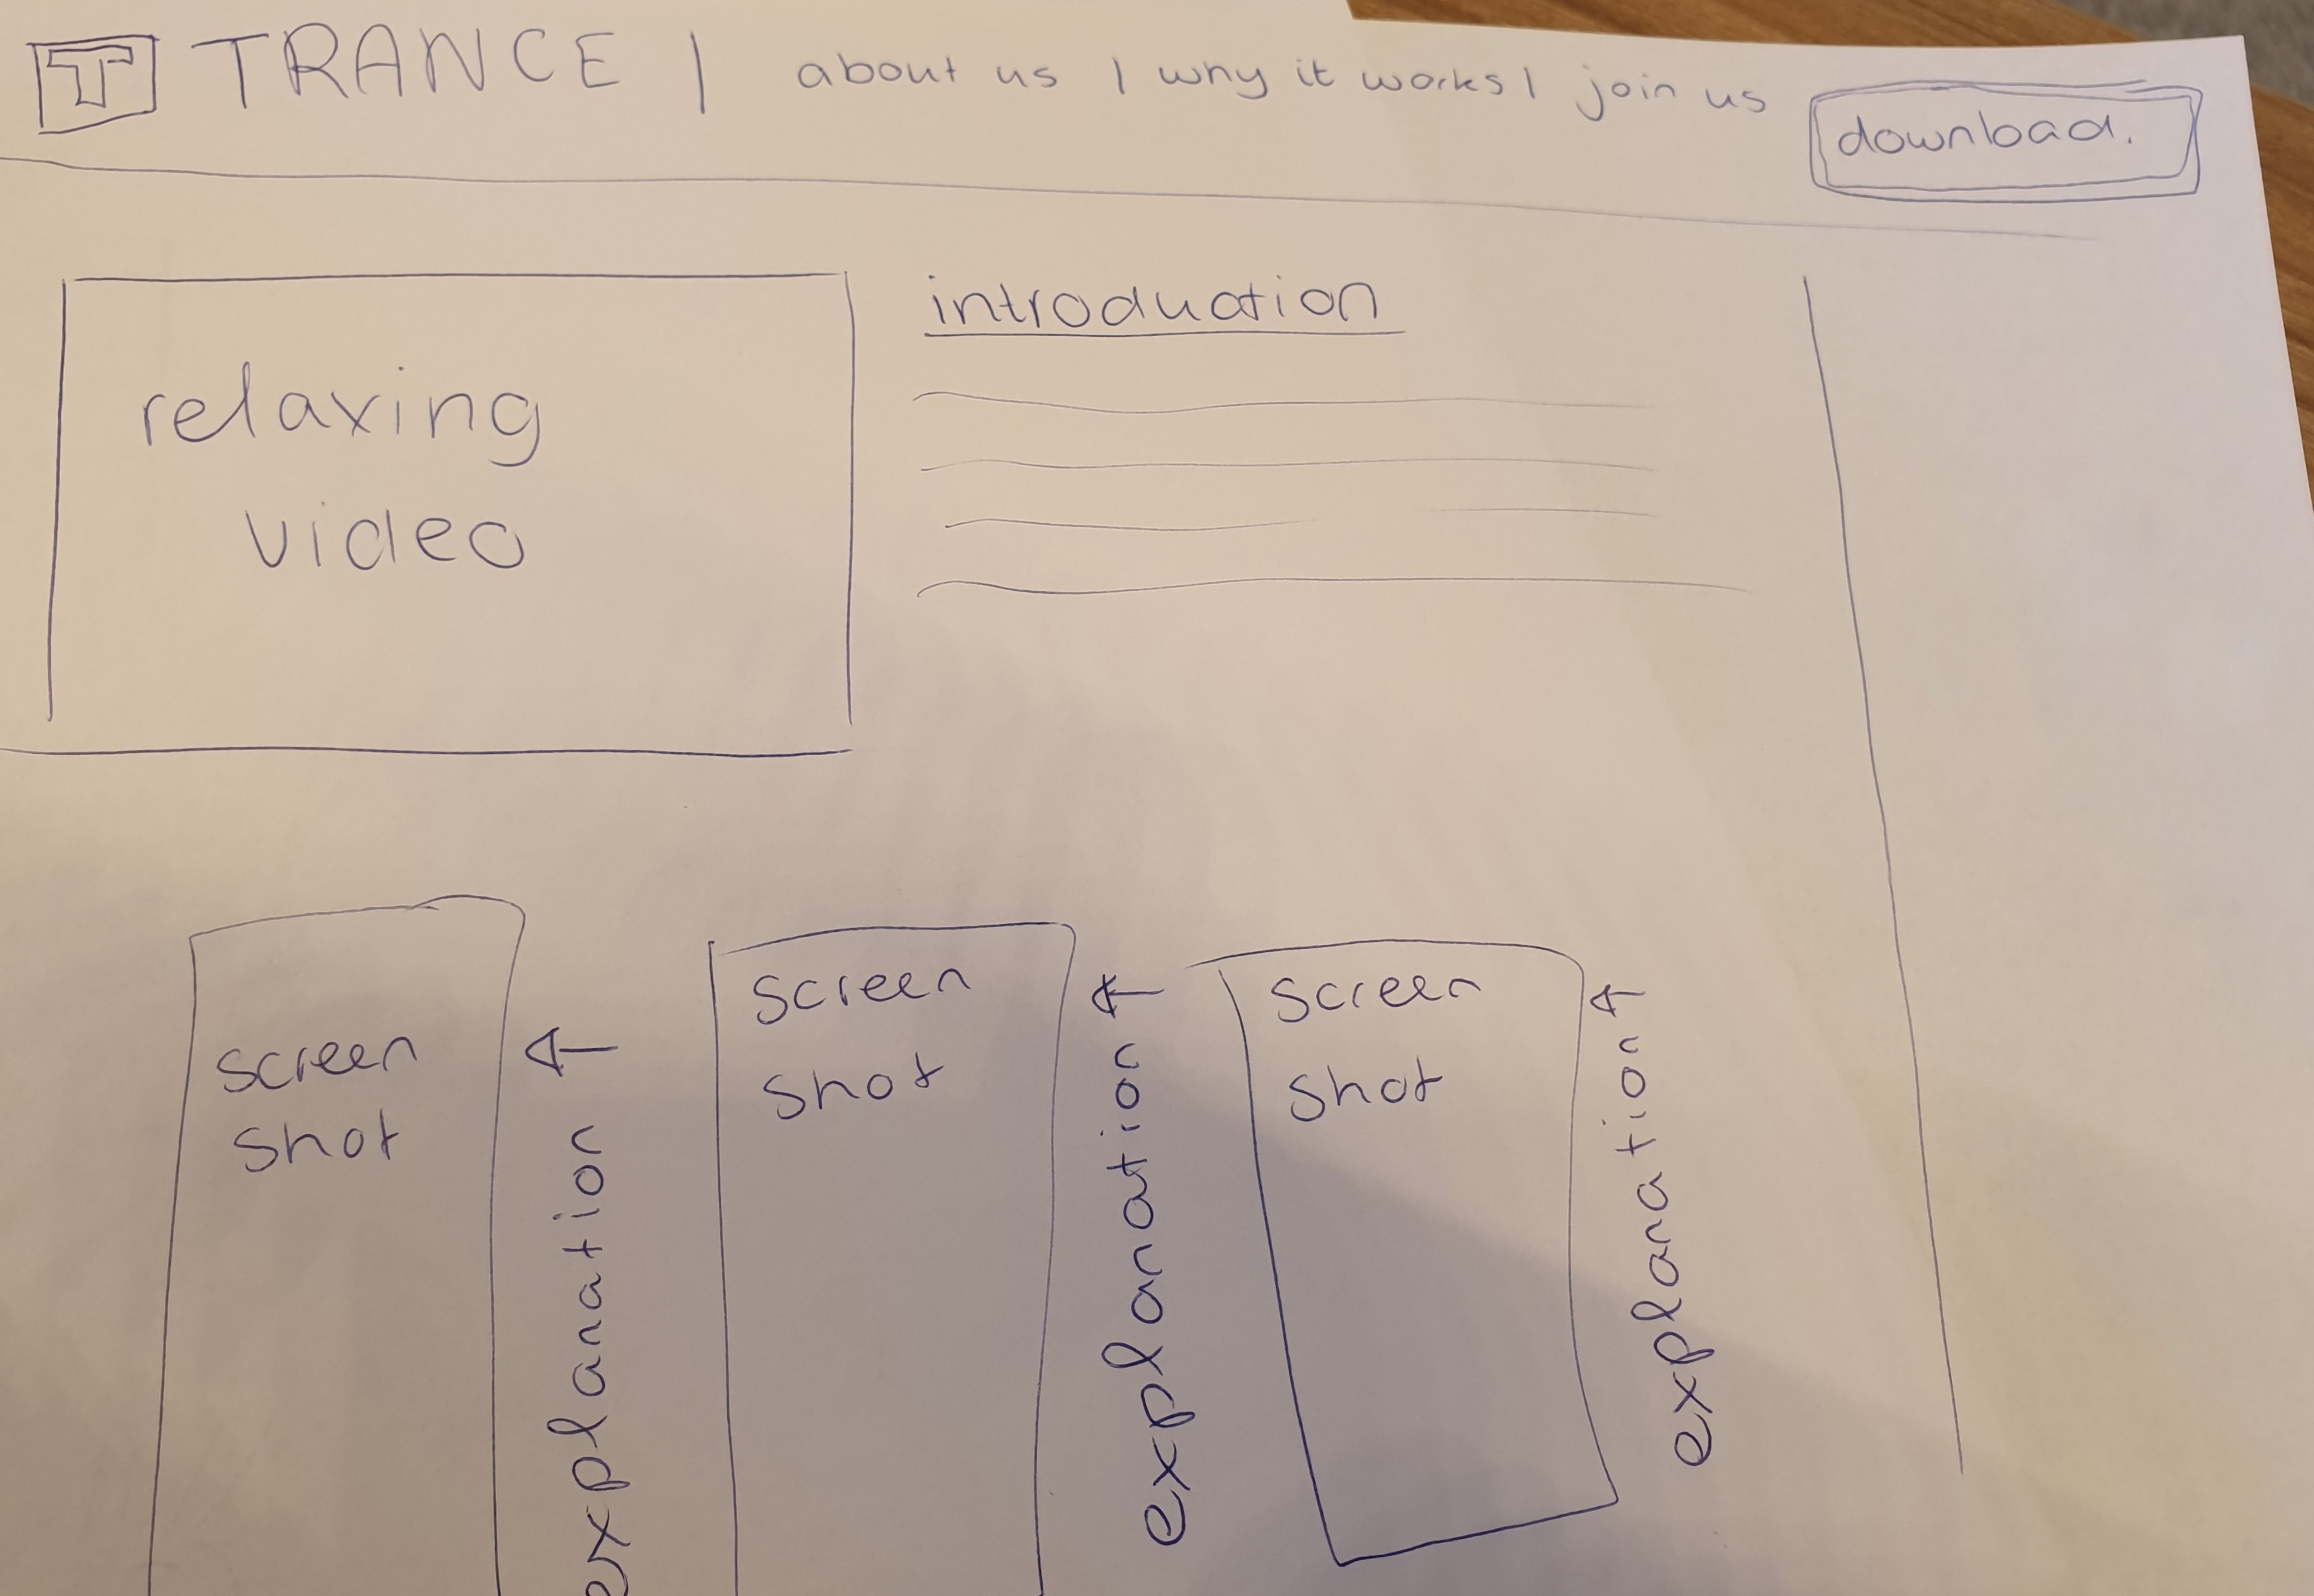 T TRANCE | about us | why it works | join us download.
introduction
relaxing
video
screen
shot
explanation
screen
shot
explanation
screen
shot
explanation